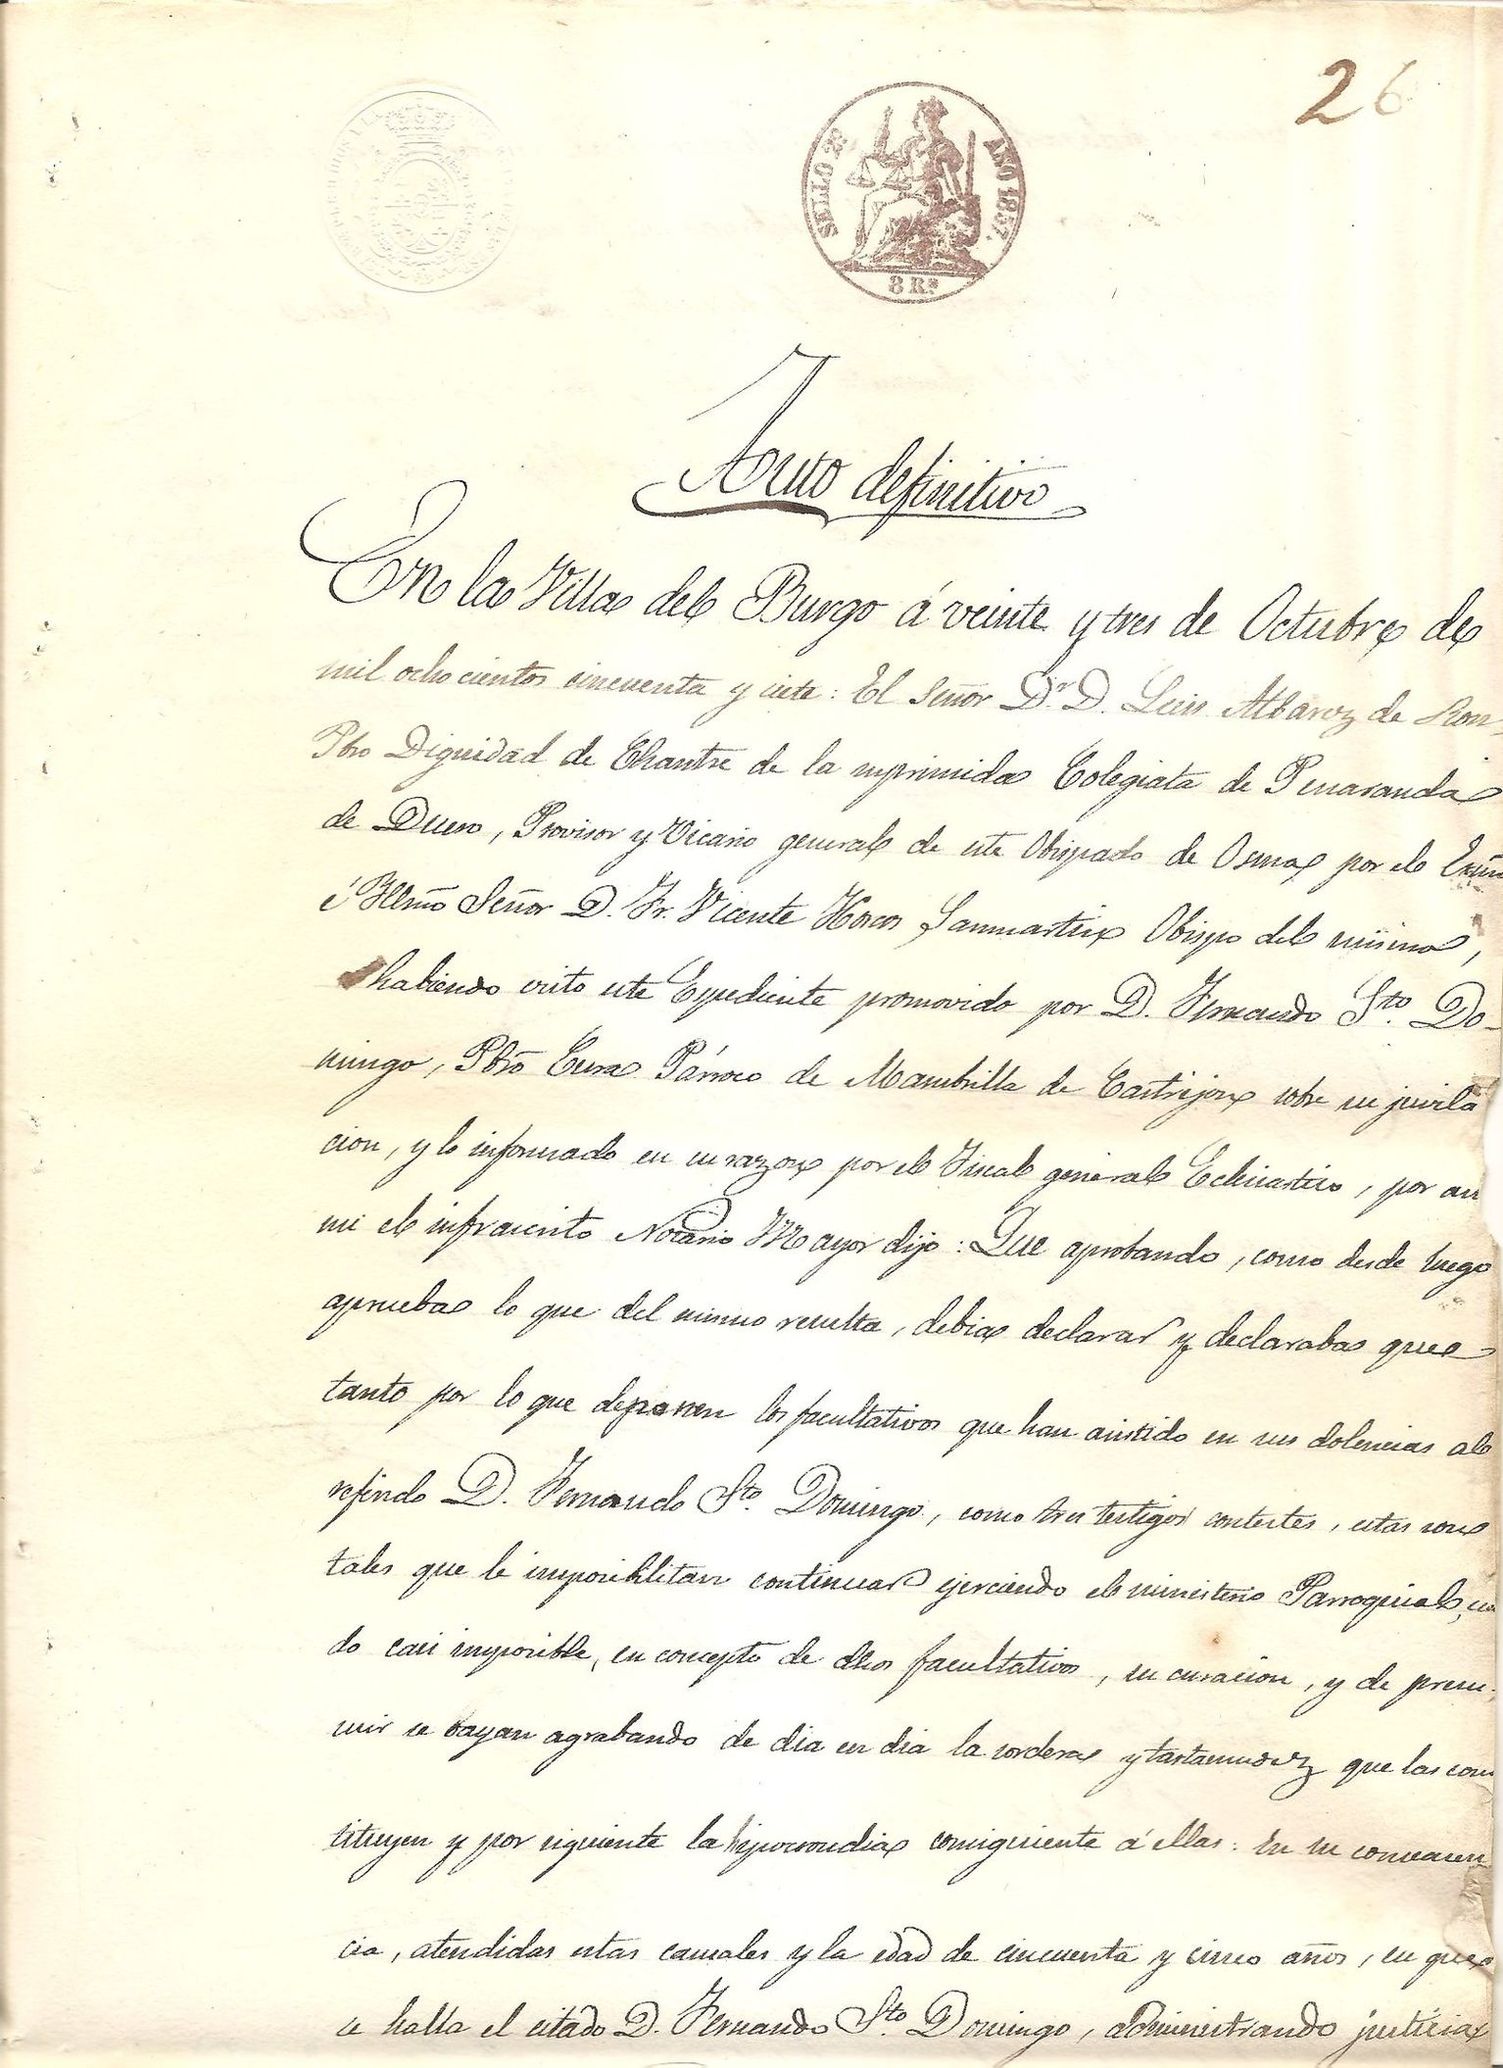 26
SELLO 2º AÑO 1857.
8 Rs
Auto definitivo
En la Villa del Burgo á veinte y tres de Octubre de
mil ocho cientos cincuenta y siete: El Señor Dr. D. Luis Albarez de
Pbro Dignidad de Chantre de la suprimida Colegiata de Penaranda
de Duero, Provisor y Vicario general de este Obispado de Osma por el Exmõ
é Yllmõ Señor D. Fr. Vicente Horcos Sanmartin Obispo del mismo,
habiendo visto este Expediente promovido por D. Fernando Sto. Do-
mingo, Pbrõ Cura Párroco de Mambrilla de Castrejon sobre su juvila
cion, y lo informado en su razon por el Fiscal general Eclesiastico, por an
mi el infrascrito Notario Mayor dijo: Que aprobando, como desde luego
aprueba lo que del mismo resulta, debia declarar y declaraba que
tanto por lo que deponen los facultativos que han asistido en sus dolencias al
referido D. Fernando Sto. Domingo, como tres testigos contestes, estas son
tales que le imposiblitan continuar ejerciendo el ministerio Parroquial,
do casi imposible, en concepto de dhos facultativos, su curacion, y de presu-
mir se bayan agrabando de dia en dia la sordera y tartamudez que las cons
tituyen y por siguiente la hipocondia consiguiente á ellas: En su consecuen
cia, atendidas estas causales y la edad de cincuenta y cinco años, en que
se halla el citado D. Fernando Sto. Domingo, administrando justicia